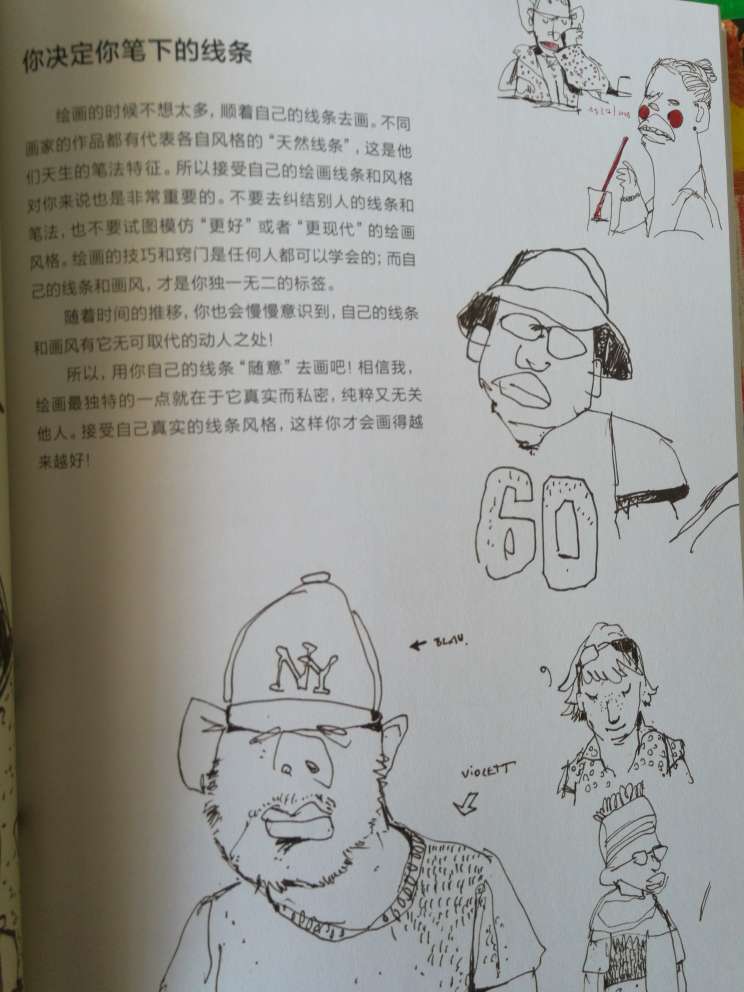 你决定你笔下的线条
绘画的时候不想太多，顺着自己的线条去画。不同
画家的作品都有代表各自风格的“天然线条”，这是他
们天生的笔法特征。所以接受自己的绘画线条和风格
对你来说也是非常重要的。不要去纠结别人的线条和
笔法，也不要试图模仿“更好”或者“更现代”的绘画
风格。绘画的技巧和窍门是任何人都可以学会的；而自
己的线条和画风，才是你独一无二的标签。
随着时间的推移，你也会慢慢意识到，自己的线条
和画风有它无可取代的动人之处！
所以，用你自己的线条“随意”去画吧！相信我，
绘画最独特的一点就在于它真实而私密，纯粹又无关
他人。接受自己真实的线条风格，这样你才会画得越
来越好！
60
NY
VIOLETT